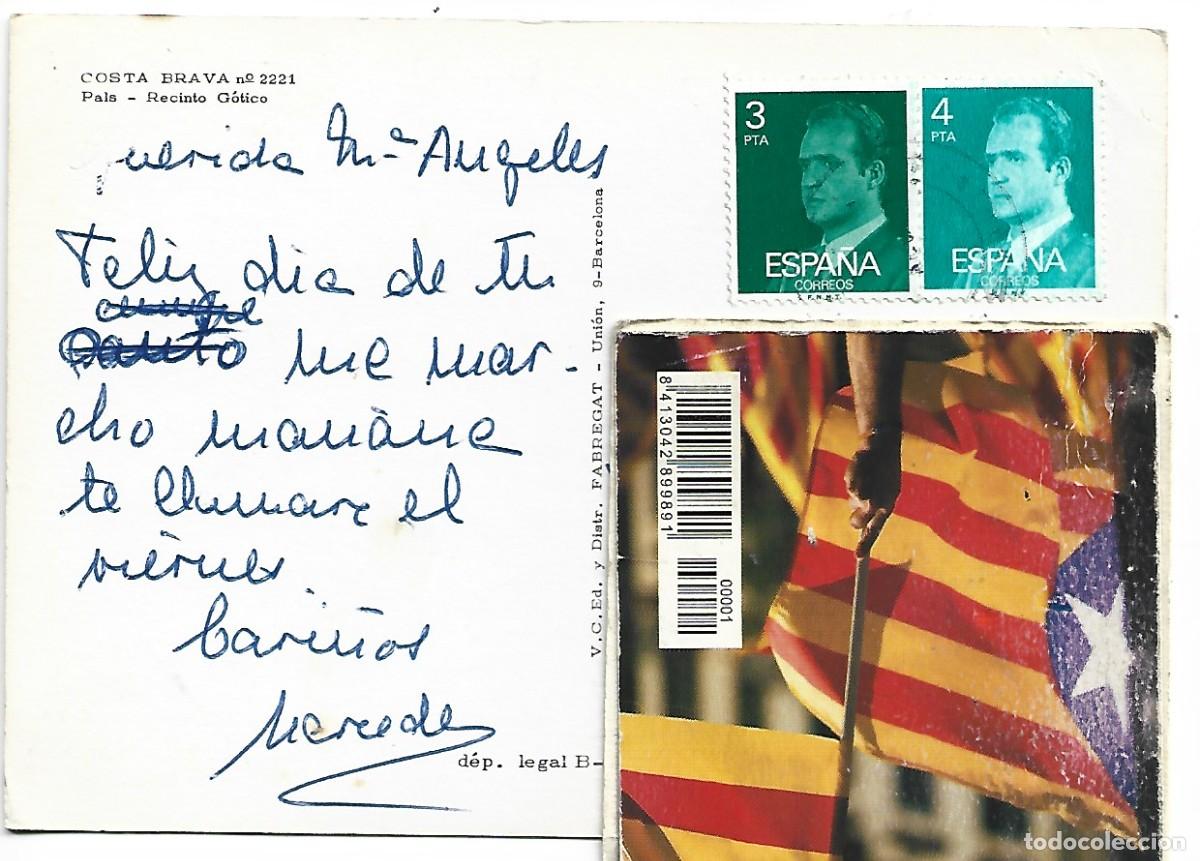 COSTA BRAVA nº 2221
Pals - Recinto Gótico
querida Mª Angeles
Feliz dia de tu
me mar-
cho mañana
te llamare el
viernes.
Cariños
Mercedes
V. C. Ed. y Distr. FABREGAT - Unión, 9-Barcelona
dép. legal B-
3
PTA
ESPAÑA
CORREOS
F.N.M.T.
4
PTA
ESPAÑA
CORREOS
8 413042 899891
00001
todocoleccion